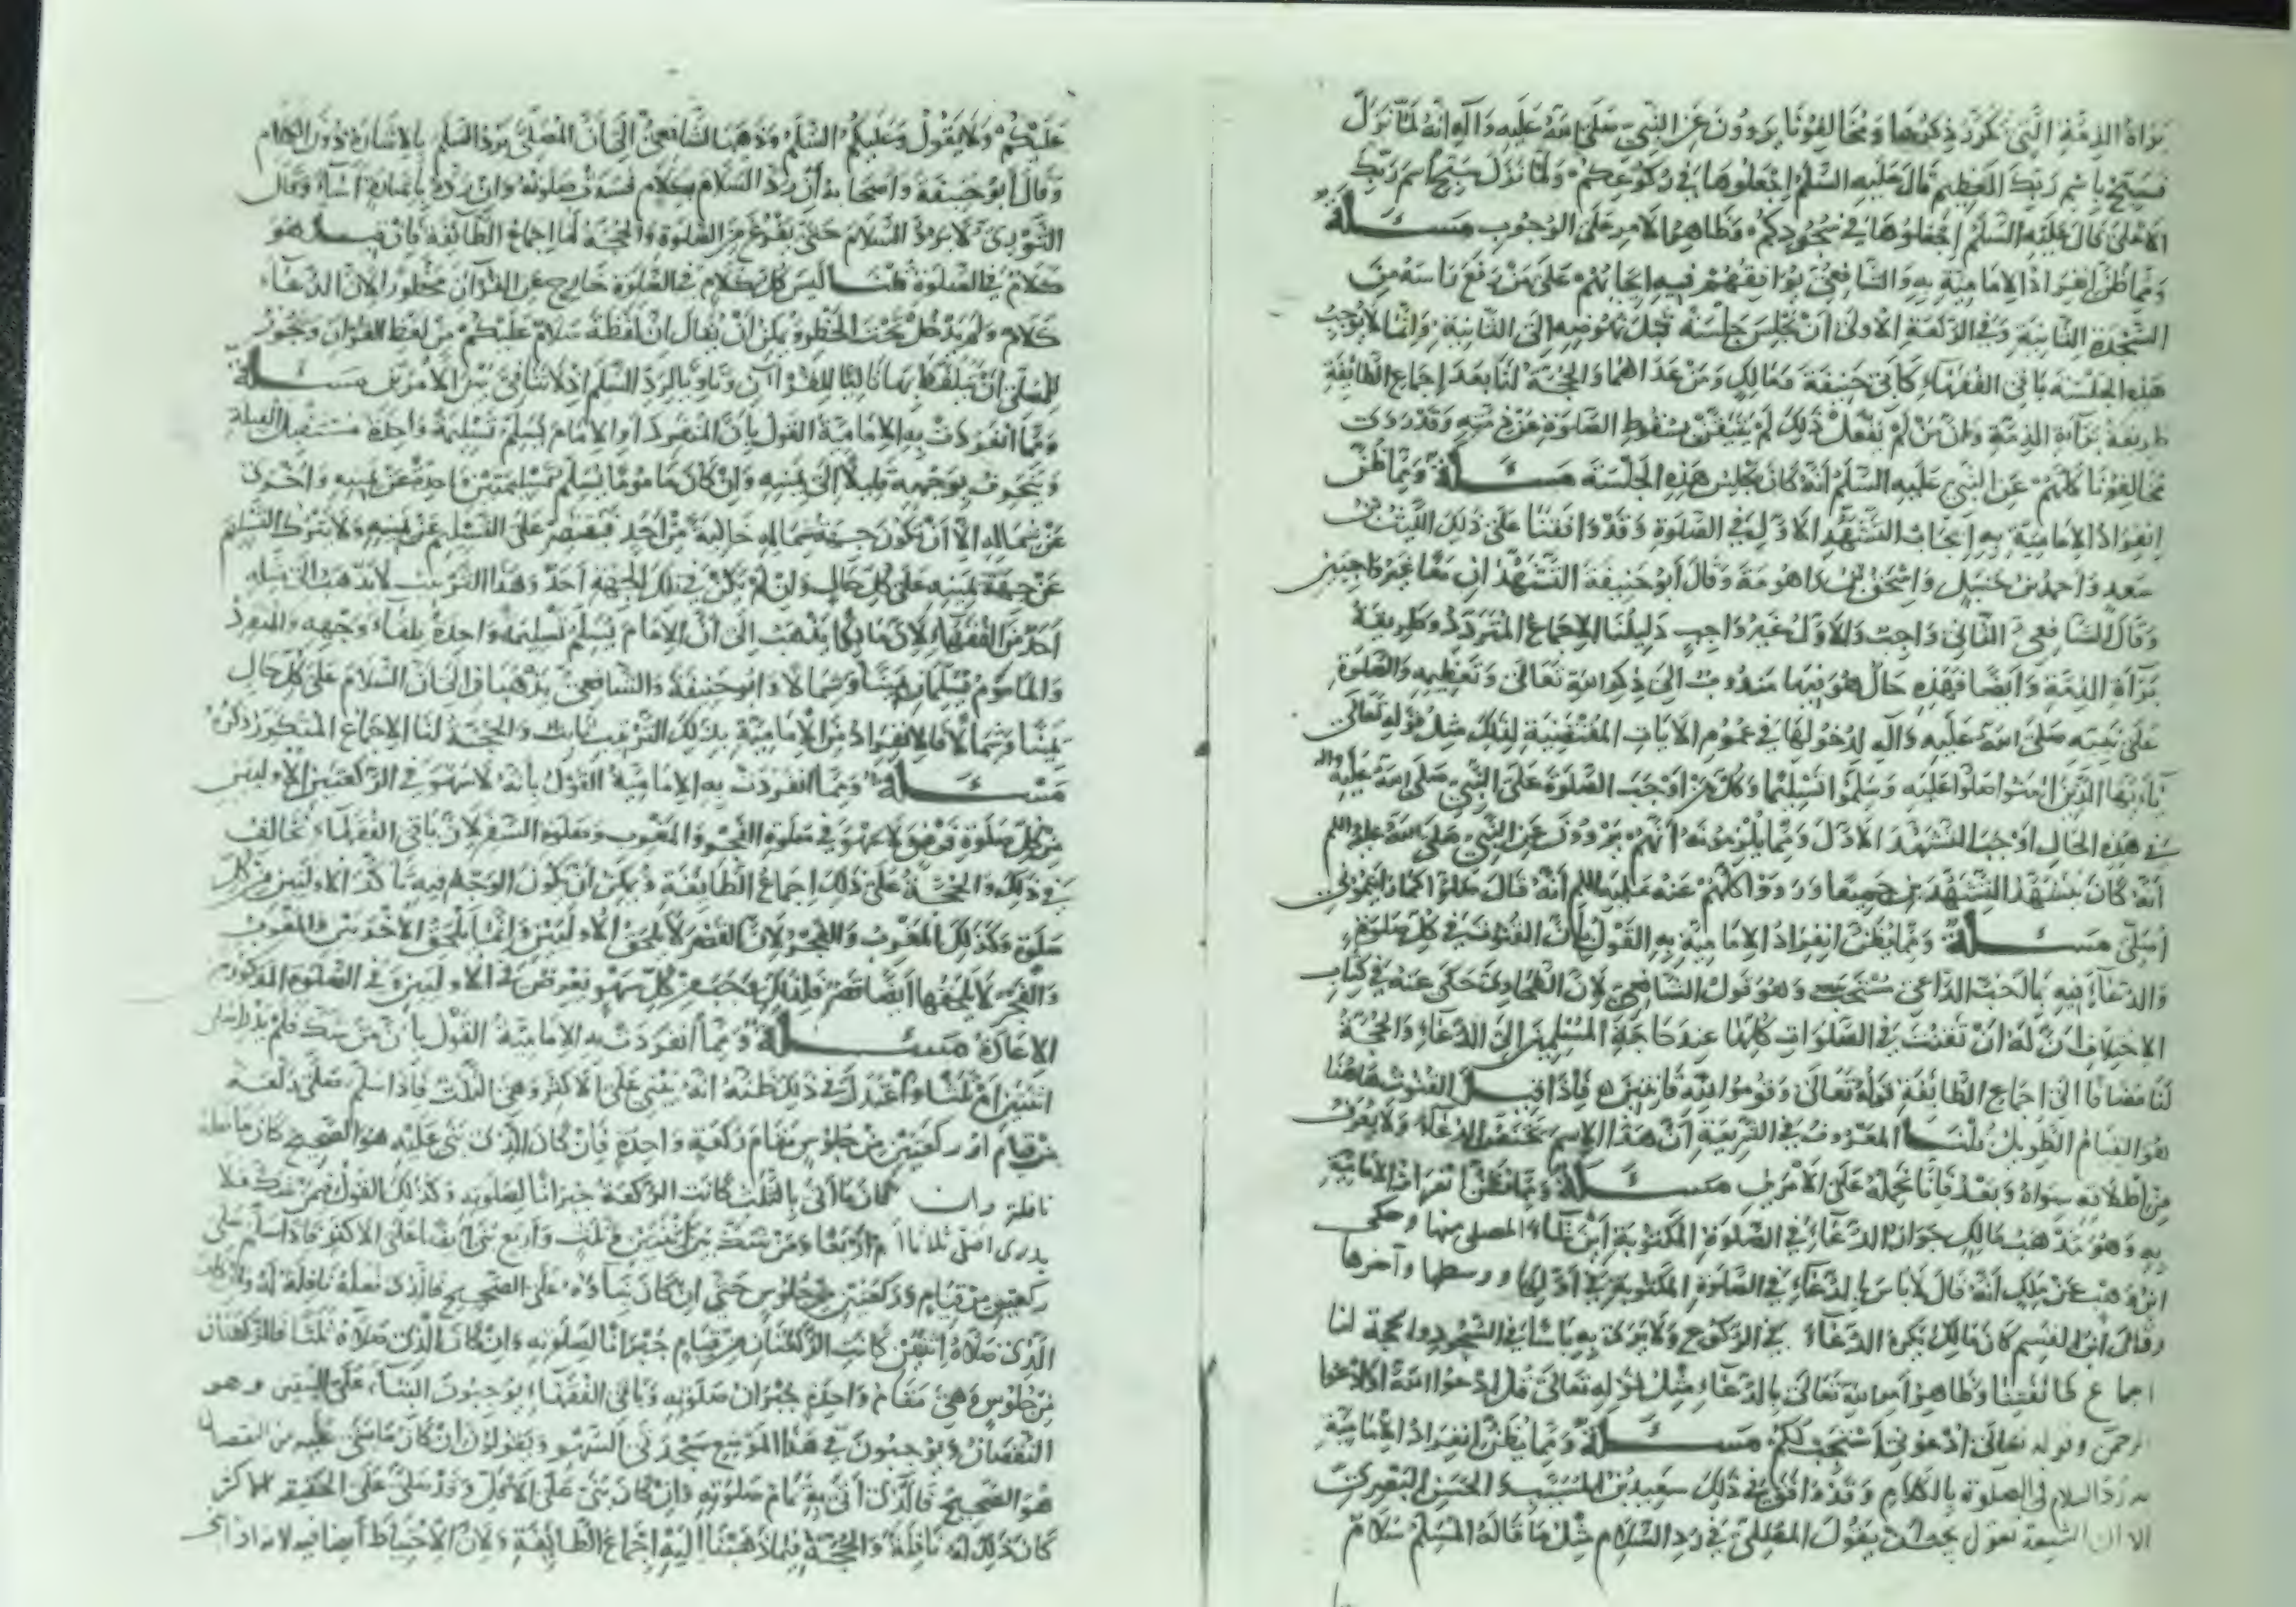 براة الذمة التي تكرر ذكرها ومخالفونا يروون عن النبي صلى الله عليه وآله انه لما نزل
فسبح باسم ربك العظيم قال عليه السلم اجعلوها في ركوعكم ولما نزل سبح اسم ربك
الاعلى قال عليه السلم اجعلوها في سجودكم وظاهر الامر على الوجوب مسئلة
ومما ظن انفراد الامامية به والشافعي يوافقهم فيه ايجابهم على من رفع راسه من
السجدة الثانية في الركعة الاولى ان يجلس جلسة قبل نهوضه الى الثانية وانما لا يوجب
هذه الجلسة باقي الفقهاء كابي حنيفة ومالك ومن عداهما والحجة لنا بعد اجماع الطائفة
طريقة براءة الذمة وان من لم يفعل ذلك لم يتيقن سقوط الصلوة عن ذمته وقد روى
مخالفونا كلهم عن النبي عليه السلم انه كان يجلس هذه الجلسة مسئلة ومما ظن
انفراد الامامية به ايجاب التشهد الاول في الصلوة وقد وافقنا على ذلك الليث بن
سعد واحمد بن حنبل واسحق بن راهويه وقال ابو حنيفة التشهدان معا غير واجبين
وقال الشافعي الثاني واجب والاول غير واجب دليلنا الاجماع المتردد وطريقة
براة الذمة وايضا فهذه حال هو فيها مندوب الى ذكر الله تعالى وتعظيمه والصلوة
على نبيه صلى الله عليه وآله لدخولها في عموم الايات المقتضية لذلك مثل قوله تعالى
يا ايها الذين امنوا صلوا عليه وسلموا تسليما وكل من اوجب الصلوة على النبي صلى الله عليه واله
في هذه الحال اوجب التشهد الاول ومما يلزمونه انهم يروون عن النبي صلى الله عليه السلم
انه كان يتشهد التشهدين جميعا ورووا كلهم عنه عليه السلم انه قال صلوا كما رايتموني
اصلي مسئلة ومما يظن انفراد الامامية به القول بان القنوت في كل صلوة
والدعاء فيه بما احب الداعي مستحب وهو قول الشافعي لان الطحاوي حكى عنه في كتاب
الاختلاف ان له ان تقنت في الصلوات كلها عند حاجة المسلمين الى الدعاء والحجة
لنا مضافا الى اجماع الطائفة قوله تعالى وقوموا لله قانتين فاذا قيل القنوت هاهنا
هو القيام الطويل قلنا المعروف في الشريعة ان هذا الاسم يختص الدعاء ولا يعرف
من اطلاقه سواه وبعد فانا نحمله على الامرين مسئلة ومما ظن انفراد الامامية
به وهو مذهب مالك جواز الدعاء في الصلوة المكتوبة اين شاء المصلى منها وحكى
ابن وهب عن ملك انه قال لا باس بالدعاء في الصلوة المكتوبة في اولها ووسطها وآخرها
وقال ابن القسم كان مالك يكره الدعاء في الركوع ولا يرى به باسا في السجود والحجة لنا
اجماع طائفتنا وظاهر امر الله تعالى بالدعاء مثل قوله تعالى قل ادعوا الله او ادعوا
الرحمن وقوله تعالى ادعوني استجب لكم مسئلة ومما يظن انفراد الامامية
به رد السلام في الصلوة بالكلام وقد وافق في ذلك سعيد بن المسيب والحسن البصري
الا ان الشيعة تقول يجب ان يقول المصلي في رد السلام مثل ما قاله المسلم سلام
عليكم ولا يقول وعليكم السلم وذهب الشافعي الى ان المصلي يرد السلم بالاشارة دون الكلام
وقال ابو حنيفة واصحابه ان رد السلام بكلام فسدت صلوته وان رده باشارة اساء وقال
الثوري لا يرد السلام حتى يفرغ من الصلوة والحجة لنا اجماع الطائفة فان قيل هو
كلام في الصلوة قلنا ليس كل كلام في الصلوة خارج عن القرآن محظور الان الدعاء
كلام ولم يدخل تحت الحظر ويمكن ان يقال ان لفظة سلام عليكم من لفظ القران ويجوز
للمصلي ان يتلفظ بها تاليا للقرآن وناويا لرد السلم اذ لا تنافي بين الامرين مسئلة
ومما انفردت به الامامية القول بان المنفرد او الامام يسلم تسليمة واحدة مستقبل القبلة
وينحرف بوجهه قليلا الى يمينه وان كان ماموما يسلم تسليمتين واحدة عن يمينه واخرى
عن شماله الا ان يكون جهة شماله خالية من احد فيقتصر على التسليم عن يمينه ولا يترك التسليم
عن جهة يمينه على كل حال وان لم يكن في تلك الجهة احد وهذا الترتيب لا يذهب الى مثله
احد من الفقهاء لان مالكا يذهب الى ان الامام يسلم تسليمة واحدة تلقاء وجهه والمنفرد
والماموم يسلمان يمينا وشمالا وابو حنيفة والشافعي يذهبان الى ان السلام على كل حال
يمينا وشمالا فالانفراد من الامامية بذلك الترتيب ثابت والحجة لنا الاجماع المتكرر ذكره
مسئلة ومما انفردت به الامامية القول بانه لا سهو في الركعتين الاوليين
من كل صلوة فرض ولا سهو في صلوة الفجر والمغرب وصلوة السفر لان باقي الفقهاء تخالف
في ذلك والحجة على ذلك اجماع الطائفة ويمكن ان يكون الوجه فيه تاكد الاوليين من كل
صلوة وكذلك المغرب والفجر لان القصر لا يلحق الاوليين وانما يلحق الاخريين والمغرب
والفجر لا يلحقها ايضا قصر فلذلك وجب من كل سهو يعرض في الاوليين وفي الصلوة المذكورة
الاعادة مسئلة ومما انفردت به الامامية القول بان من شك فلم يدر اصلى
اثنتين ام ثلثا واعتدل في ذلك ظنه انه يبني على الاكثر وهي الثلث فاذا سلم صلى ركعة
من قيام او ركعتين من جلوس مقام ركعة واحدة فان كان الذي بنى عليه هو الصحيح كان ما صلاه
نافلة وان كان ما اتى بالثلث كانت الركعة جبرانا لصلوته وكذلك القول فيمن شك فلا
يدرى اصلى ثلاثا ام اربعا ومن شك بين اثنتين وثلث واربع بنى ايضا على الاكثر فاذا سلم صلى
ركعتين من قيام وركعتين من جلوس حتى ان كان بناؤه على الصحيح فالذي فعله نافلة له وان كان
الذي صلاه اثنتين كانت الركعتان من قيام جبرانا لصلوته وان كان الذي صلاه ثلثا فالركعتان
من جلوس وهي مقام واحدة جبران صلوته وباقي الفقهاء يوجبون البناء على اليقين وهو
النقصان ويوجبون في هذا الموضع سجدتي السهو ويقولون ان كان ما بنى عليه من النقصان
هو الصحيح فالذي اتى به تمام صلوته وان كان بنى على الاقل وقد صلى على الحقيقة الاكثر
كان ذلك له نافلة والحجة فيما ذهبنا اليه اجماع الطائفة ولان الاحتياط ايضا فيه لانه اذا بنى